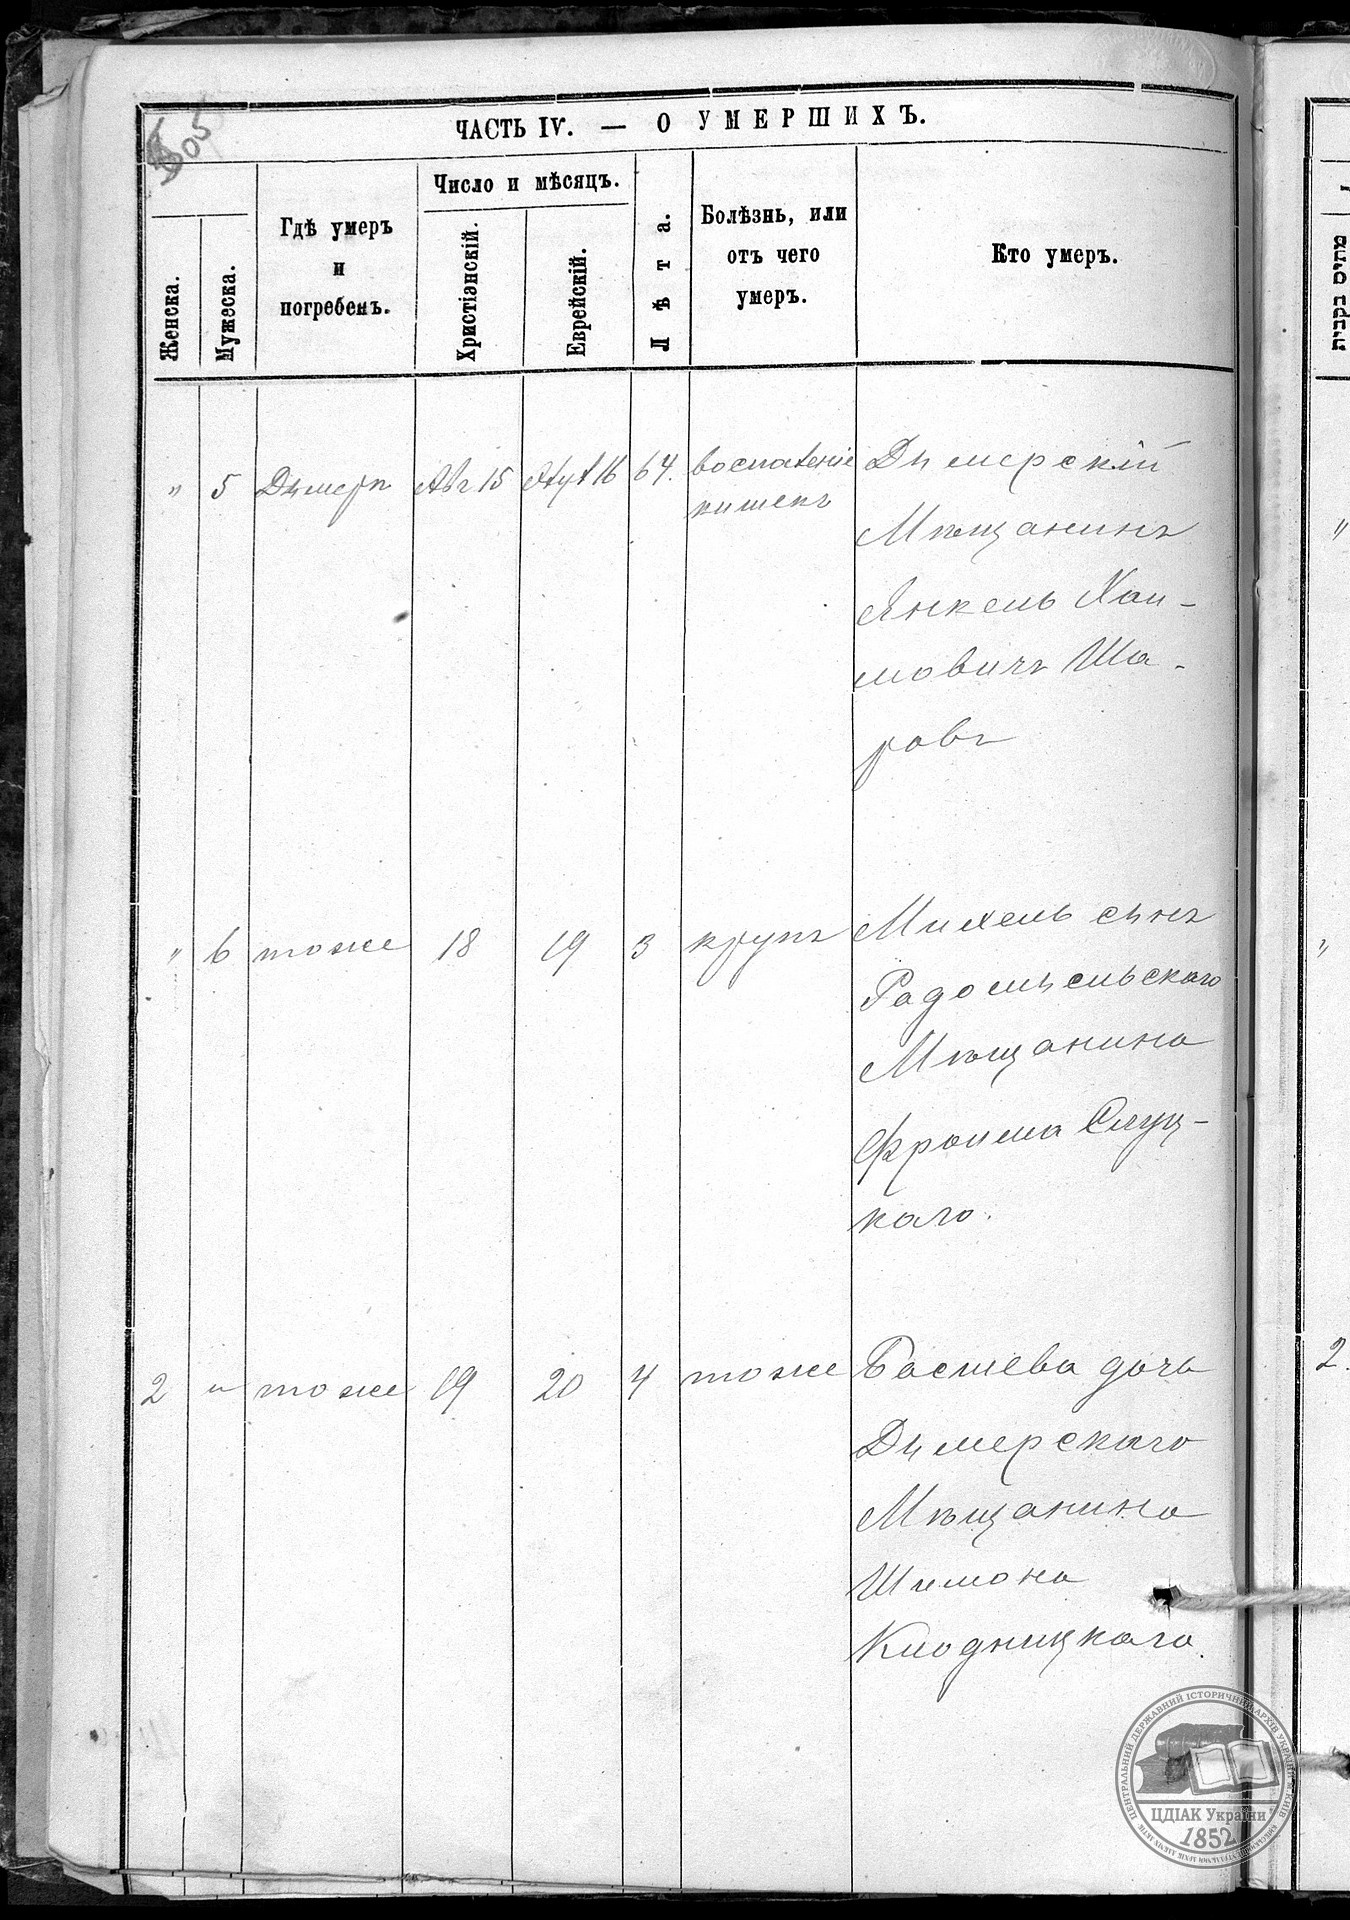 505
ЧАСТЬ IV. — О УМЕРШИХЪ.
Женска.
Мужеска.
Гдѣ умеръ
и
погребенъ.
Число и мѣсяцъ.
Христіянскій.
Еврейскій.
Лѣта.
Болѣзнь, или
отъ чего
умеръ.
Кто умеръ.
" 5 Дымеръ Авг 15 16 64. воспаленіе
кишекъ
Дымерскій
Мѣщанинъ
Янкель Хаи-
мовичъ Ша-
ровъ
" 6 тоже 18 19 3 крупъ
Михель сынъ
Радомысльскаго
Мѣщанина
Фроима Слуц-
каго.
2 " тоже 19 20 4 тоже
Басшева дочь
Дымерскаго
Мѣщанина
Шимона
Клодницкаго.
מהיכן בקבית
"
"
2.
ЦЕНТРАЛЬНИЙ ДЕРЖАВНИЙ ІСТОРИЧНИЙ АРХІВ УКРАЇНИ, М. КИЇВ
ЦДІАК України
1852